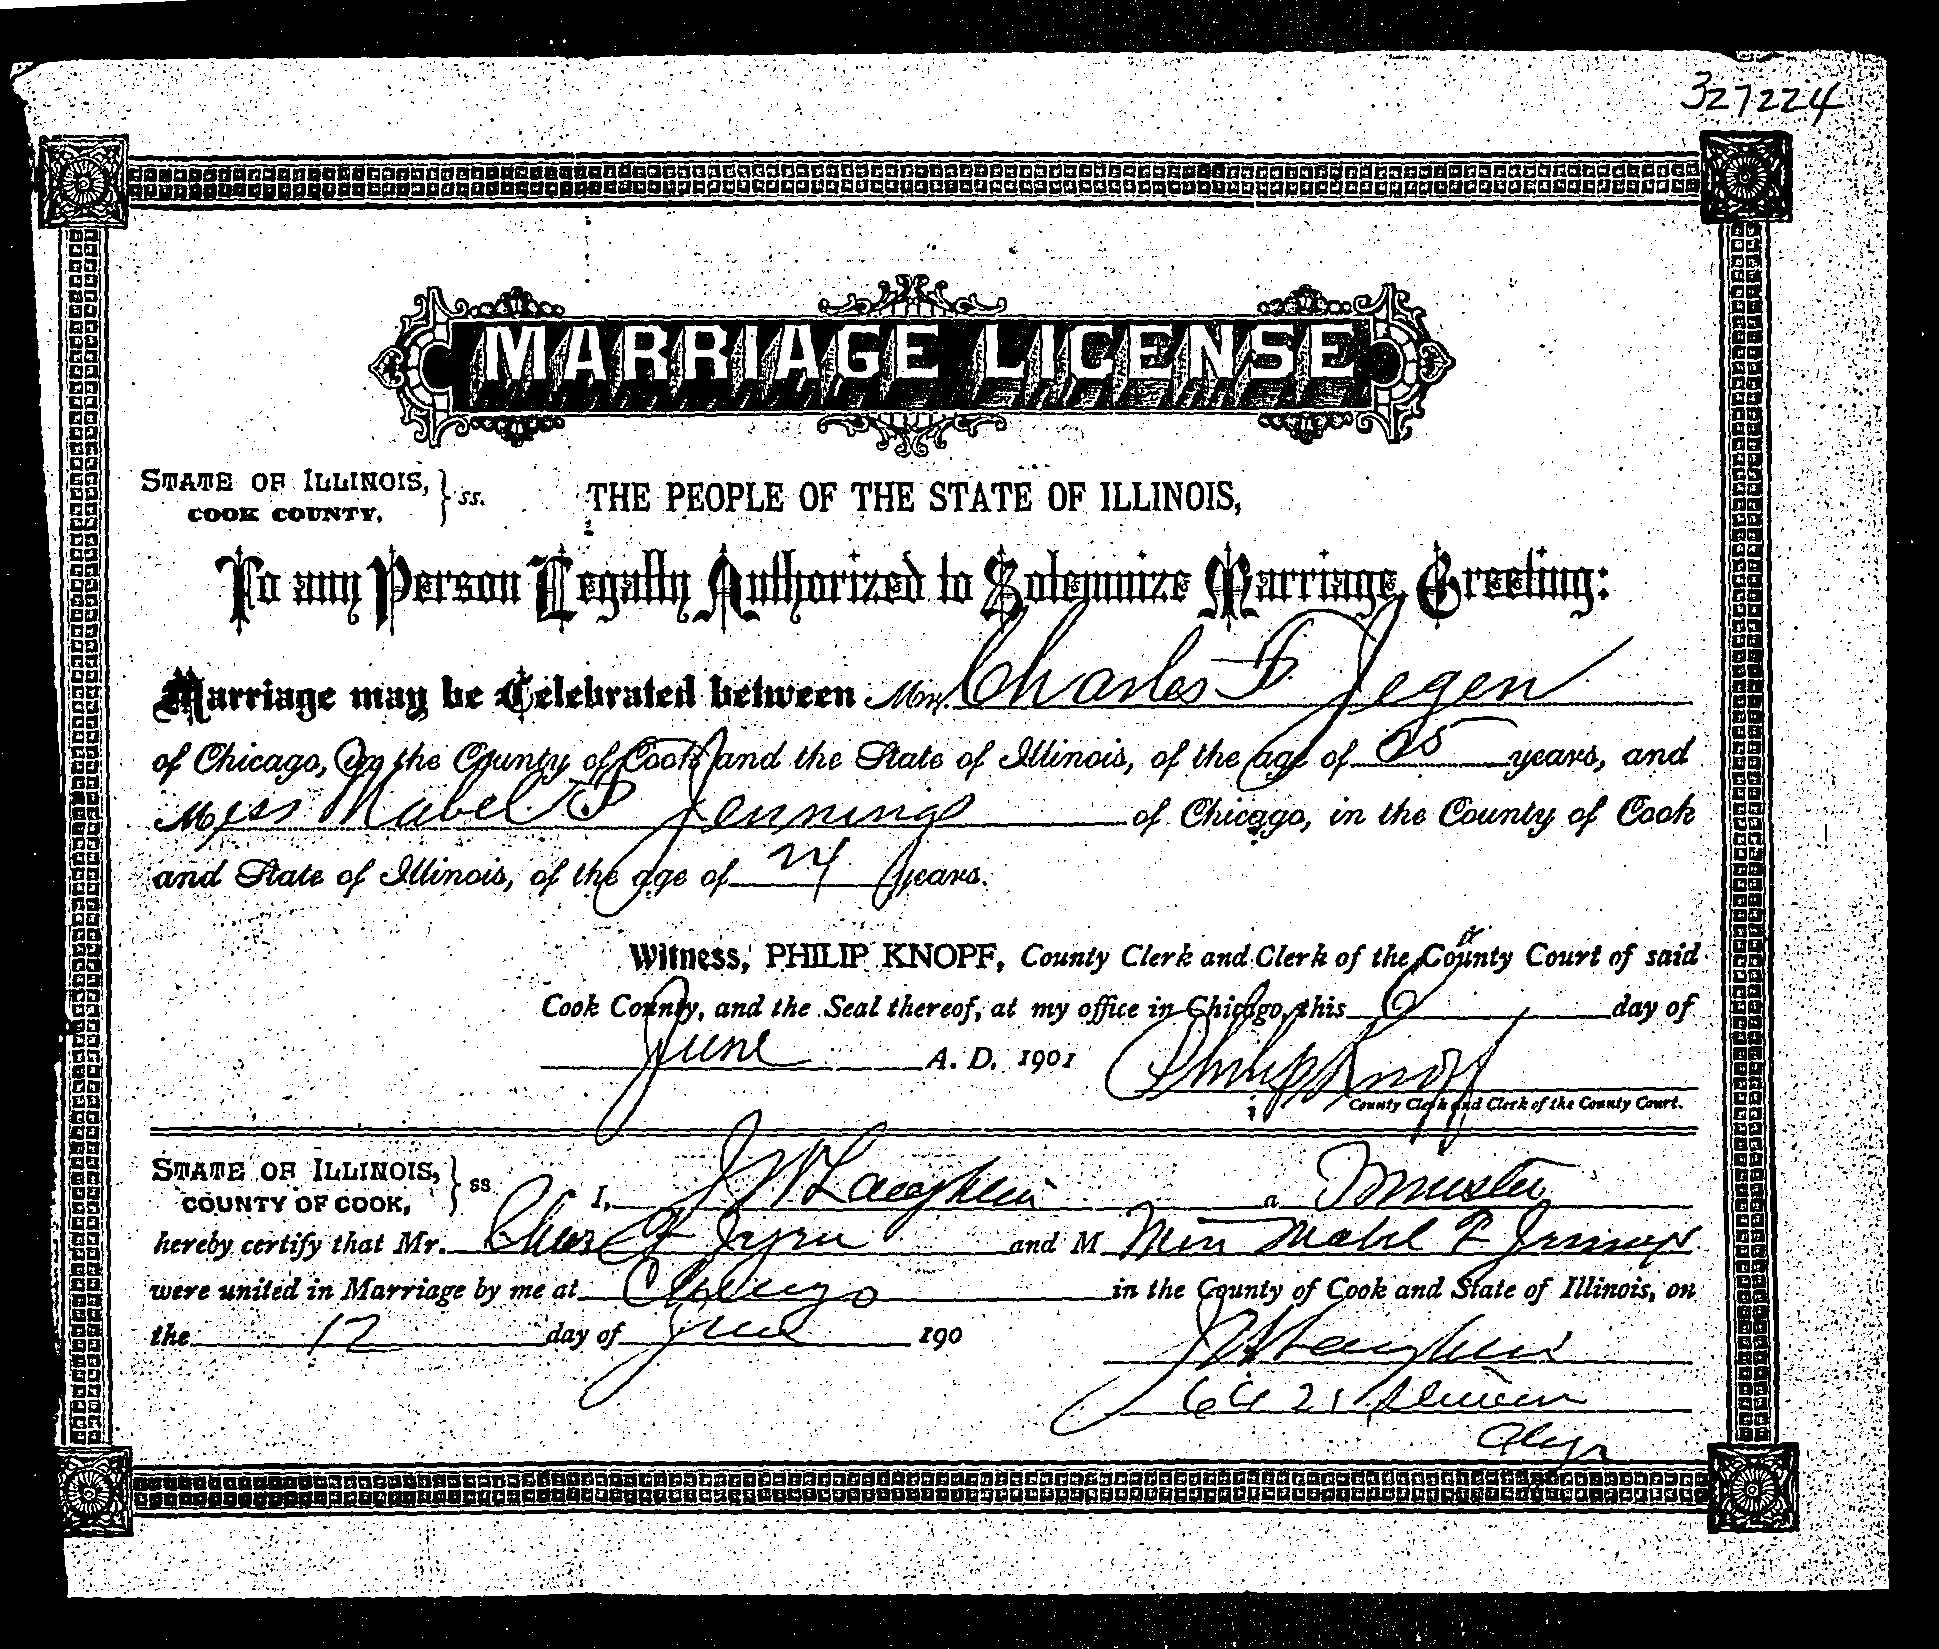 327224
MARRIAGE LICENSE
STATE OF ILLINOIS, } ss. THE PEOPLE OF THE STATE OF ILLINOIS,
COOK COUNTY,
To any Person Legally Authorized to Solemnize Marriage, Greeting:
Marriage may be Celebrated between Mr. Charles F. Jegen
of Chicago, in the County of Cook and the State of Illinois, of the age of 25 years, and
Miss Mabel F Jennings of Chicago, in the County of Cook
and State of Illinois, of the age of 24 years.
Witness, PHILIP KNOPF, County Clerk and Clerk of the County Court of said
Cook County, and the Seal thereof, at my office in Chicago, this 6 day of
June A. D. 1901 Philip Knopf
County Clerk and Clerk of the County Court.
STATE OF ILLINOIS, } ss I, J W Laughlin a Minister
COUNTY OF COOK,
hereby certify that Mr. Chas F Jegen and M Miss Mabel F Jennings
were united in Marriage by me at Chicago in the County of Cook and State of Illinois, on
the 12 day of June 190
J W Laughlin
6421